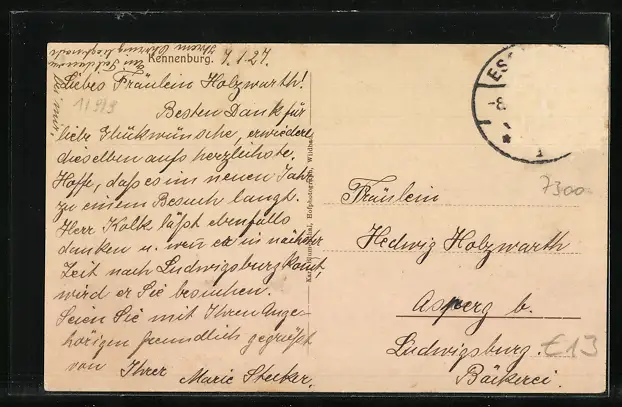 Kennenburg. 7.1.27.
Liebes Fräulein Holzwarth!
11999
Besten Dank für
liebe Glückwünsche, erwiedere
dieselben aufs herzlichste.
Hoffe, dass es im neuen Jahr
zu einem Besuch langt.
Herr Kolk lässt ebenfalls
danken u. wen er in nächster
Zeit nach Ludwigsburg kommt,
wird er Sie besuchen.
Seien Sie mit Ihren Ange-
hörigen freundlich gegrüsst
von Ihrer
Marie Stecker.
Hofphotograph,
ES
-8
*
1
7300
Fräulein
Hedwig Holzwarth
Asperg b.
Ludwigsburg.
€13
Bäckerei.